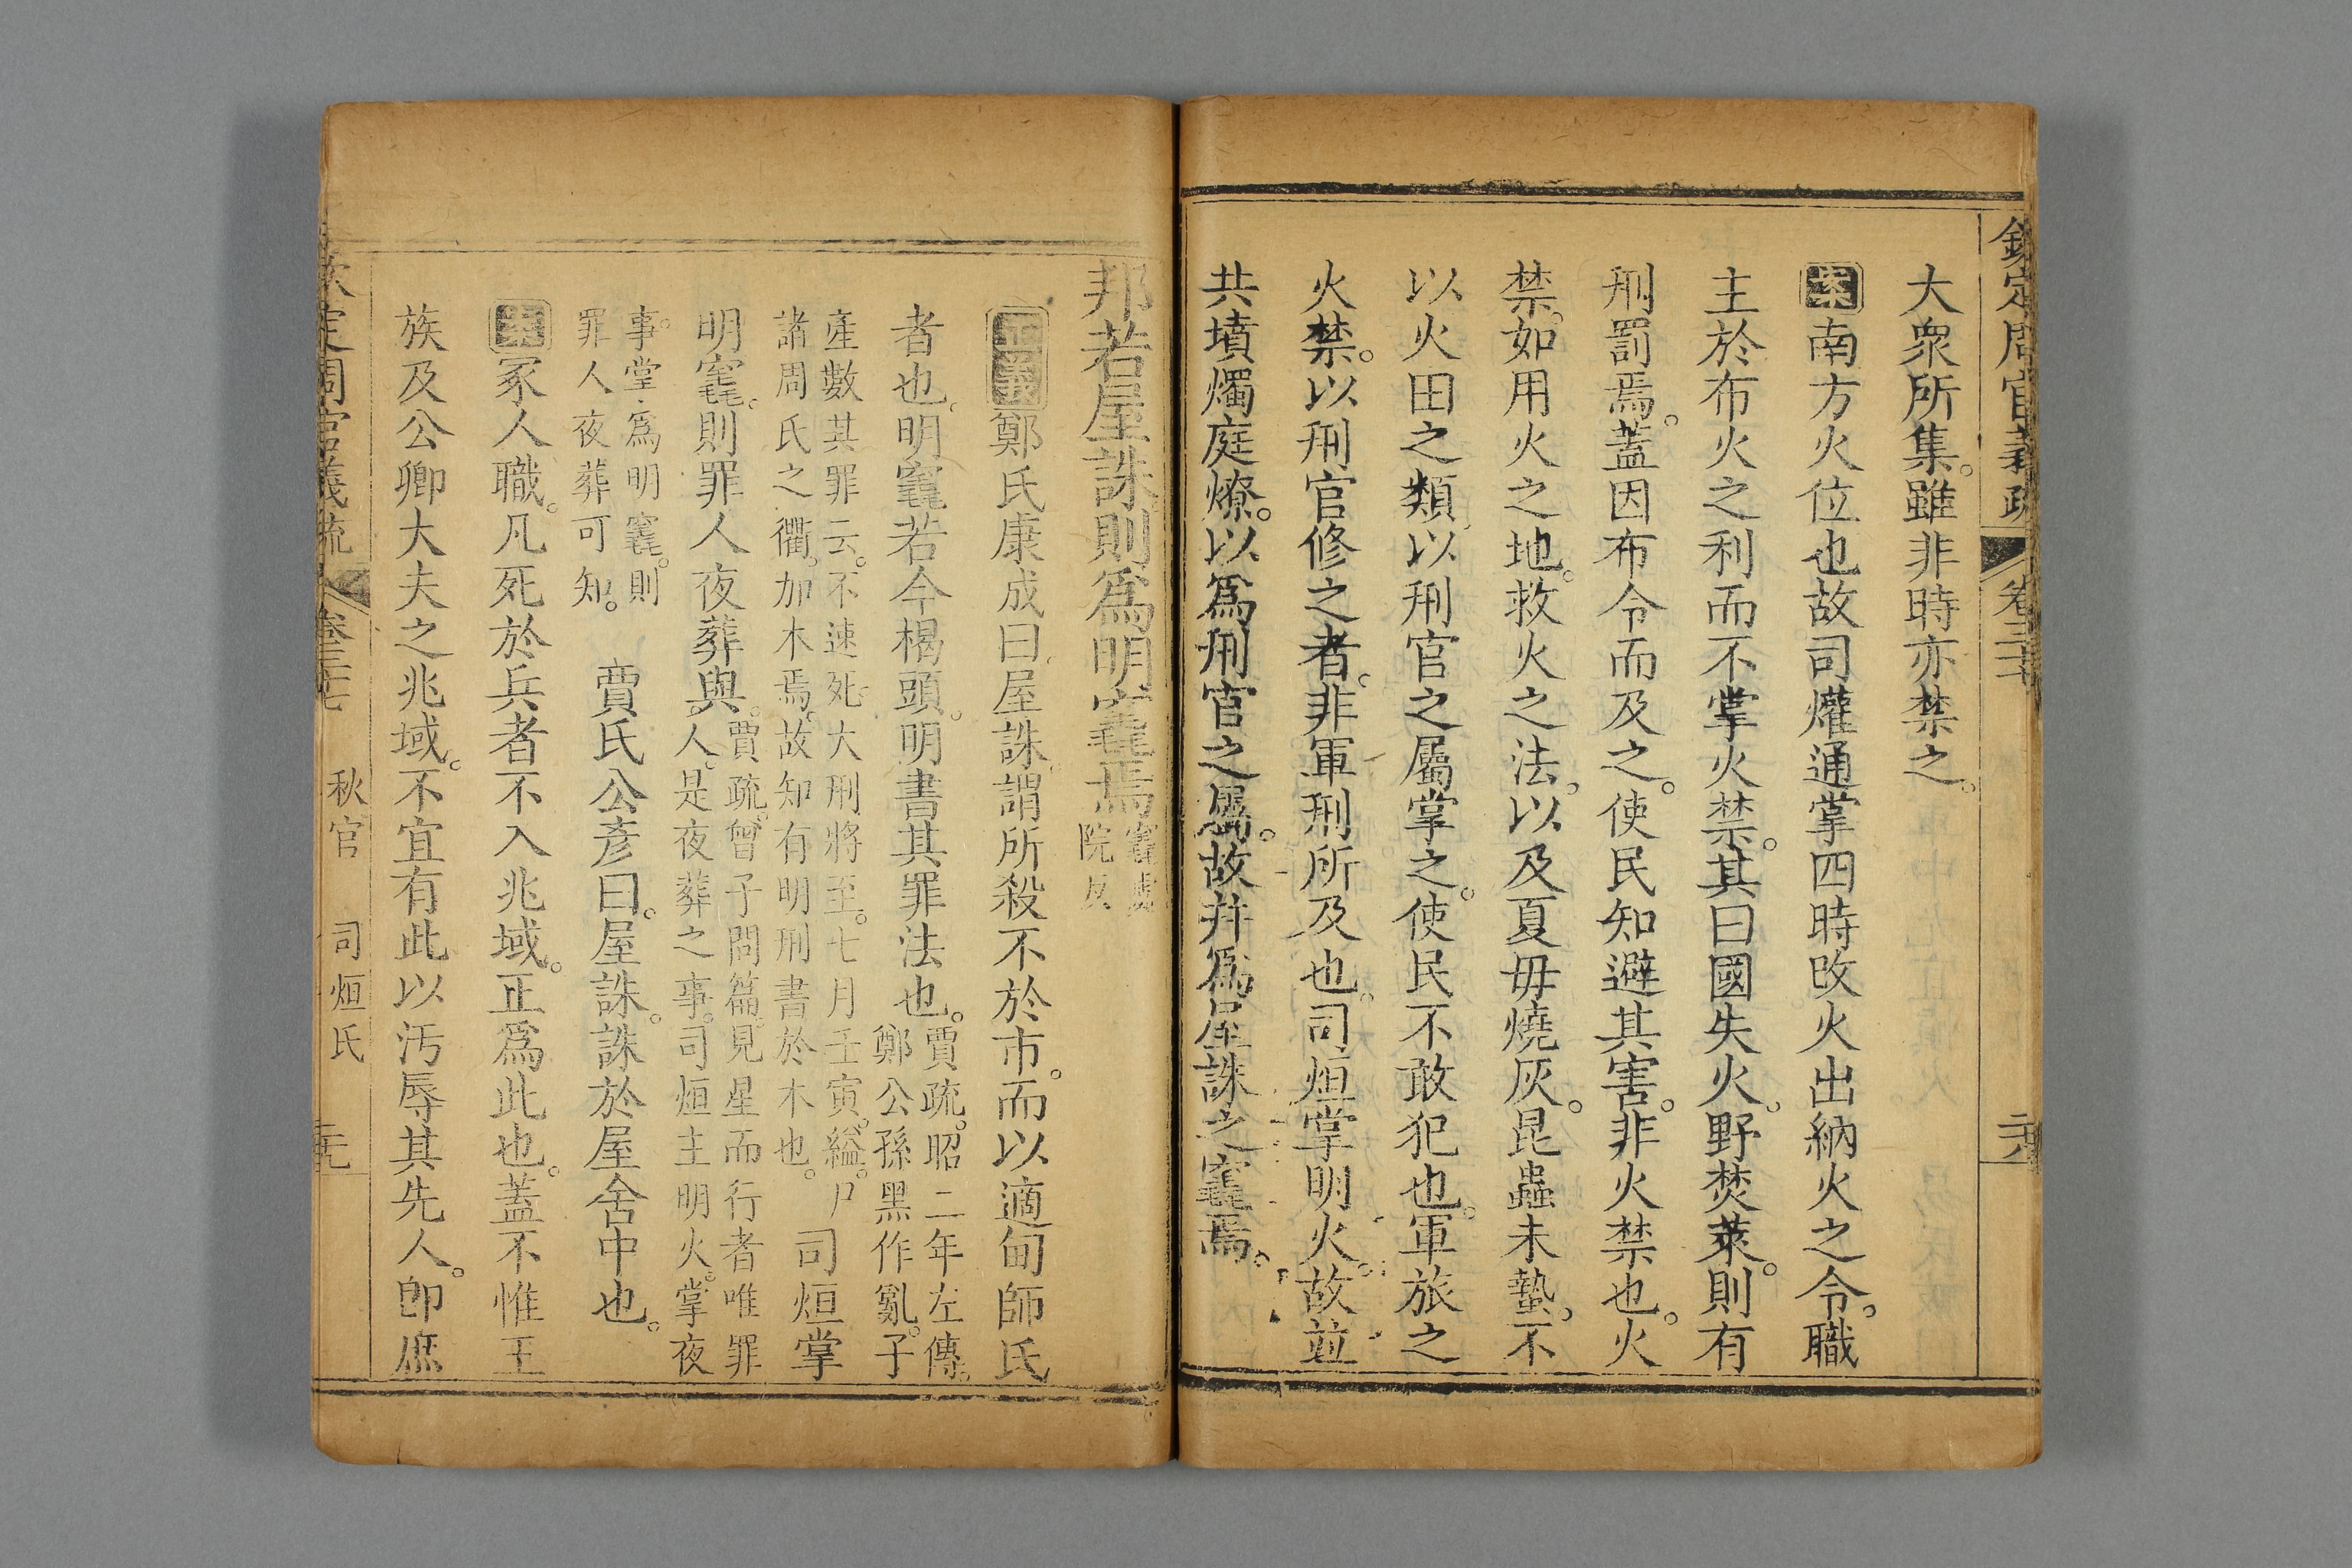 欽定周官義疏 卷三十七 二六
大衆所集。雖非時亦禁之。
案南方火位也故司爟通掌四時改火出納火之令。職
主於布火之利而不掌火禁。其曰國失火。野焚萊。則有
刑罰焉。蓋因布令而及之。使民知避其害。非火禁也。火
禁。如用火之地。救火之法。以及夏毋燒灰。昆蟲未蟄。不
以火田之類。以刑官之屬掌之。使民不敢犯也。軍旅之
火禁。以刑官修之者。非軍刑所及也。司烜掌明火。故並
共墳燭庭燎。以爲刑官之屬。故幷爲屋誅之竁焉。
邦若屋誅。則爲明竁焉
院反
正義鄭氏康成曰屋誅。謂所殺不於市。而以適甸師氏
者也。明竁若今楬頭。明書其罪法也。
賈疏。昭二年左傳。
鄭公孫黑作亂。子
產數其罪云。不速死。大刑將至。七月壬寅。縊。尸
諸周氏之衢。加木焉。故知有明刑書於木也。
司烜掌
明竁。則罪人夜葬與。
賈疏。曾子問篇。見星而行者唯罪
人。是夜葬之事。司烜主明火。掌夜
事。掌爲明竁。則
罪人夜葬可知。
賈氏公彥曰。屋誅。誅於屋舍中也。
案冢人職。凡死於兵者不入兆域。正爲此也。蓋不惟王
族及公卿大夫之兆域。不宜有此以汚辱其先人。卽庶
欽定周官義疏 卷三十七 秋官 司烜氏 二九